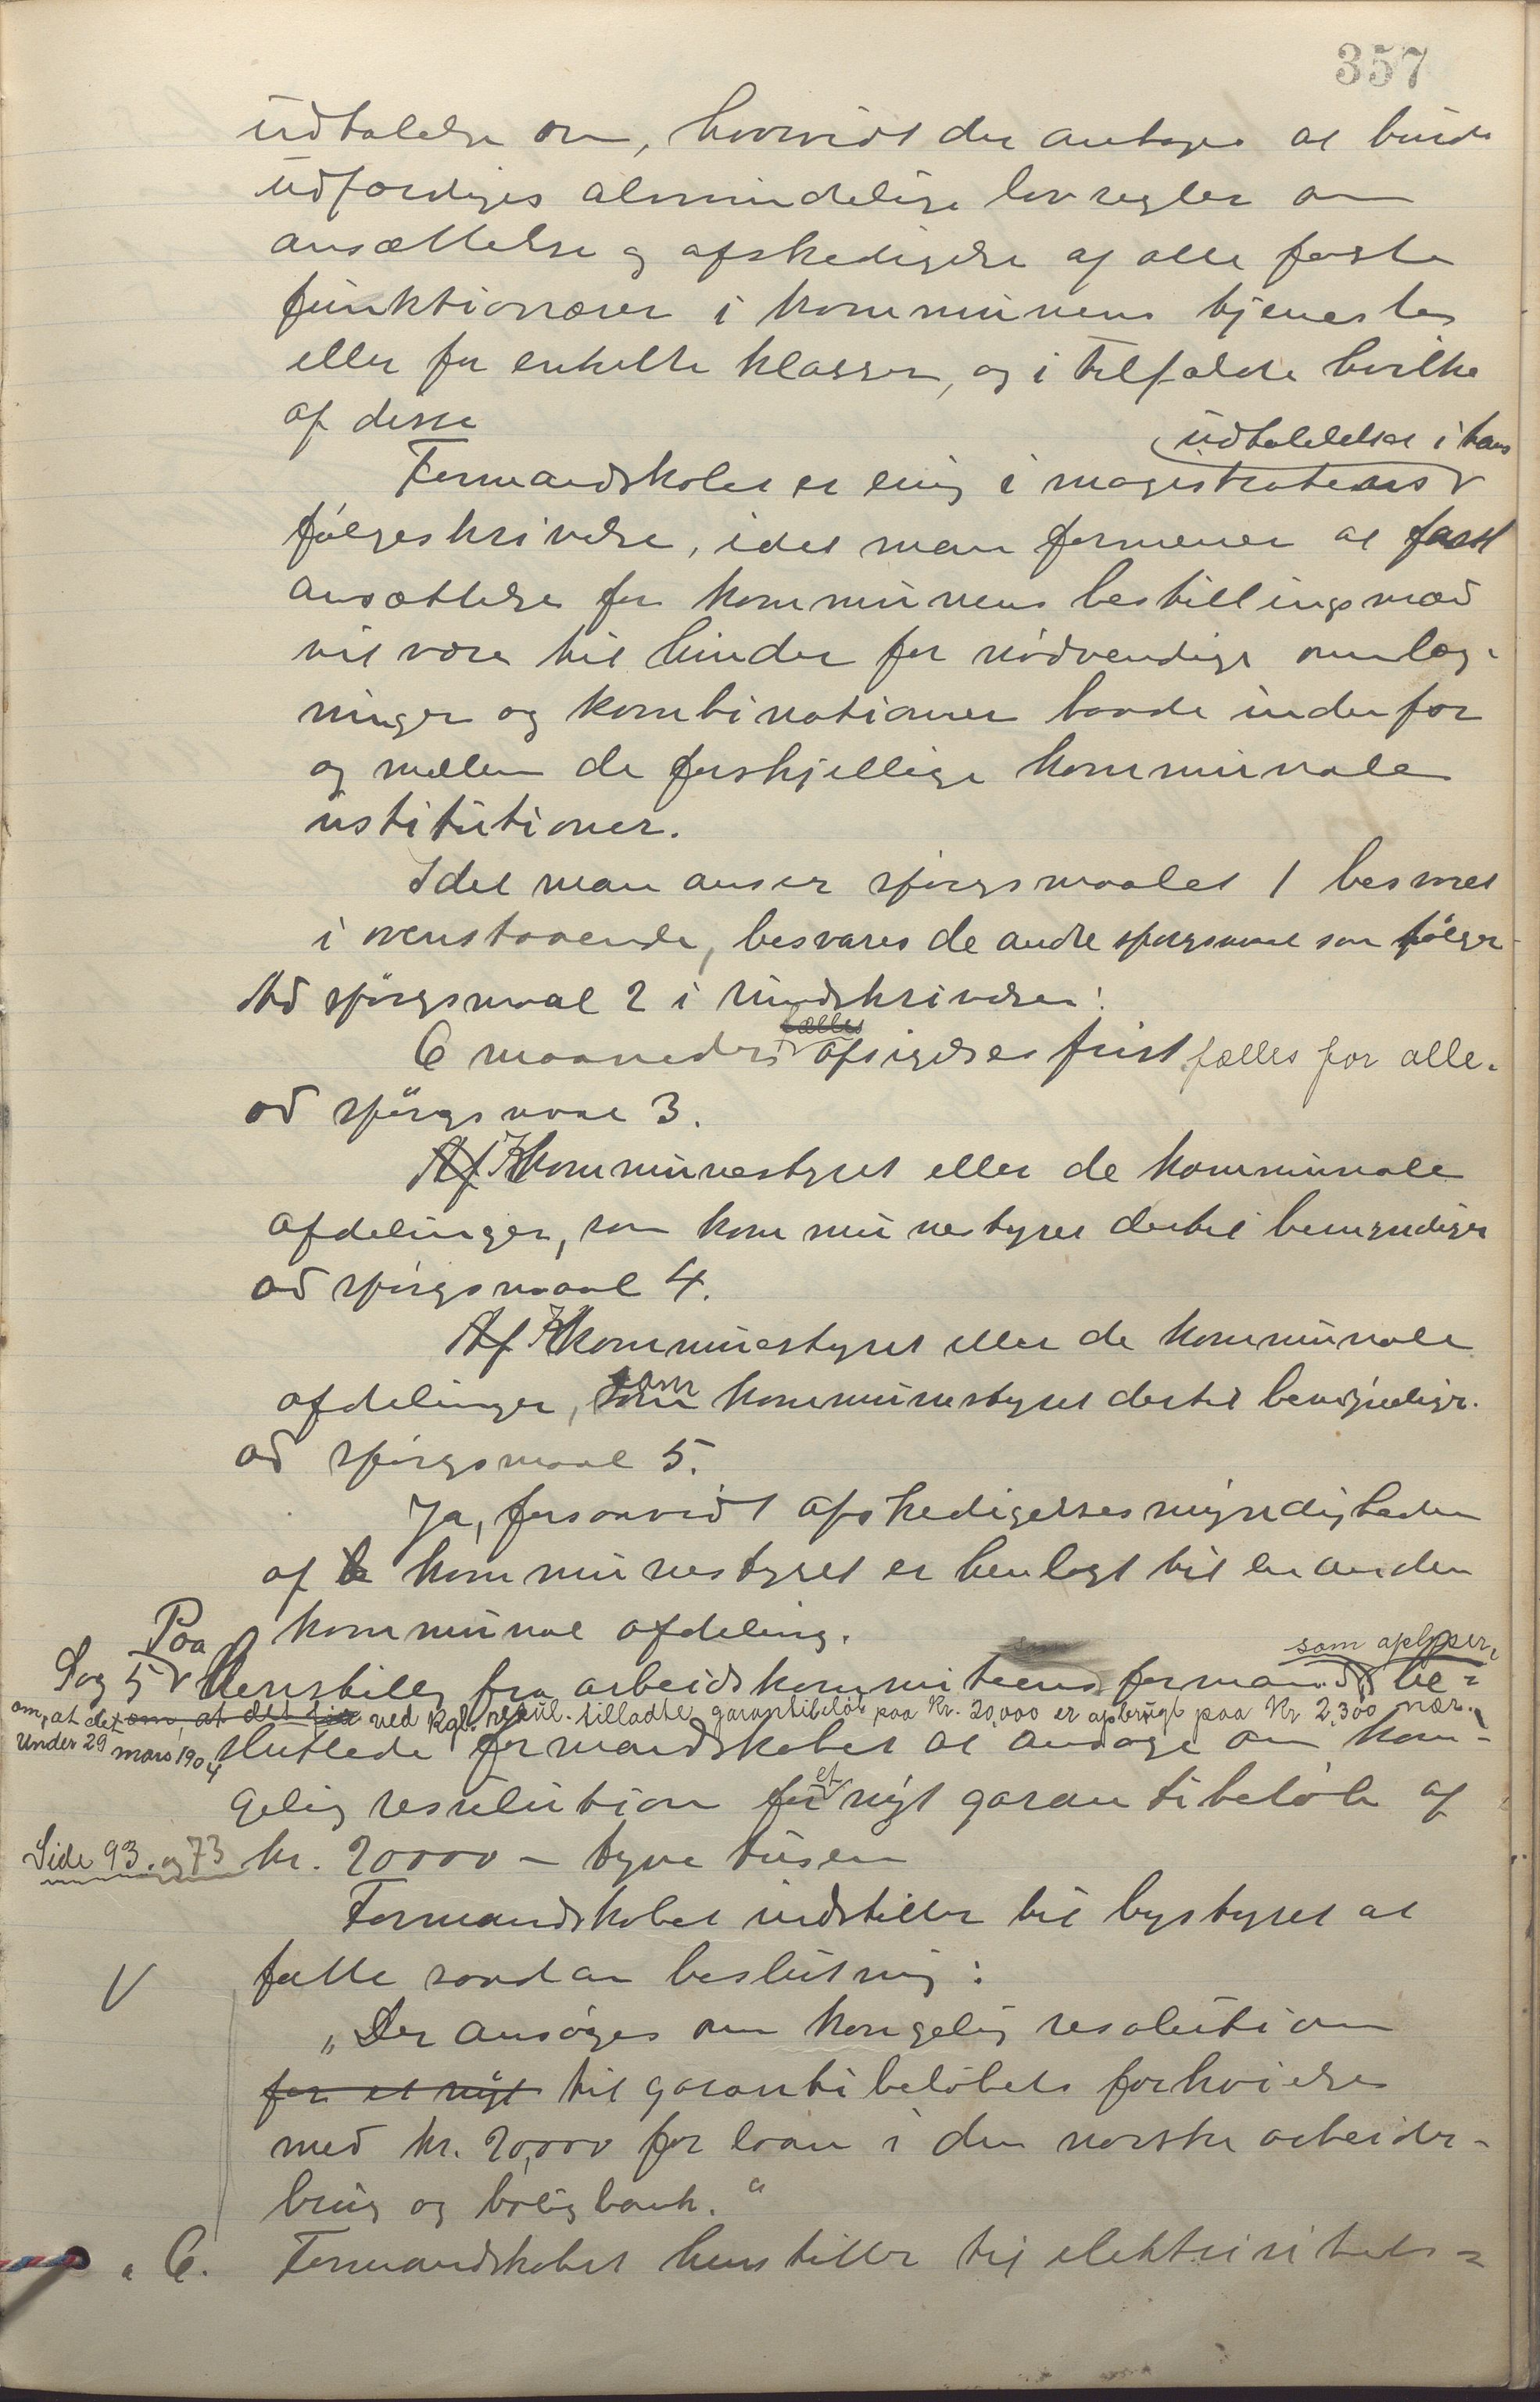 357
udtalelse om, hvorvidt der antages at burde
udfærdiges almindelige lovregler om
ansættelse og afskedigelse af alle faste
funktionærer i kommunens tjeneste
eller for enkelte klasser, og i tilfælde hvilke
af disse
udtalelelser i hans
Formandskabet er enig i magistratens
følgeskrivelse, idet man formener at fast
ansættelse for kommunens bestillingsmænd
vil være til hinder for nødvendige omlæg-
ninger og kombinationer baade indenfor
og mellem de forskjellige kommunale
institutioner.
Idet man anser spørgsmaalet 1 besvaret
i ovenstaaende, besvares de andre spørgsmaal som følger
Ad spørgsmaal 2 i rundskrivelsen:
fælles
6 maaneders afsigelses frist fælles for alle.
ad spørgsmaal 3.
Af Kommunestyret eller de kommunale
afdelinger, som kommunestyret dertil bemyndiger
ad spørgsmaal 4.
Af Kommunestyret eller de kommunale
afdelinger, som kommunestyret dertil bemyndiger.
ad spørgsmaal 5.
Ja, forsaavidt afskedigelsesmyndigheden
af kommunestyret er henlagt til en anden
kommunal afdeling.
Paa som oplyser,
Sag 5 Henstilling fra arbeidskommiteens formand be-
om, at det om, at det ved kgl. resol. tilladte garantibeløb paa Kr. 20,000 er opbrugt paa Kr 2,300 nær.
under 29 mars 1904
sluttede formandskabet at ansøge om kon-
gelig resolution for et nyt garantibeløb af
Side 93. og 73
kr. 20000 – tyve tusen
Formandskabet indstiller til bystyret at
fatte saadan beslutning:
V
„Der ansøges om kongelig resolution
for et nyt til garantibeløbets forhøielse
med kr. 20,000 for laan i den norske arbeider-
brug og boligbank.“
" 6. Formandskabet henstiller til elektricitets-